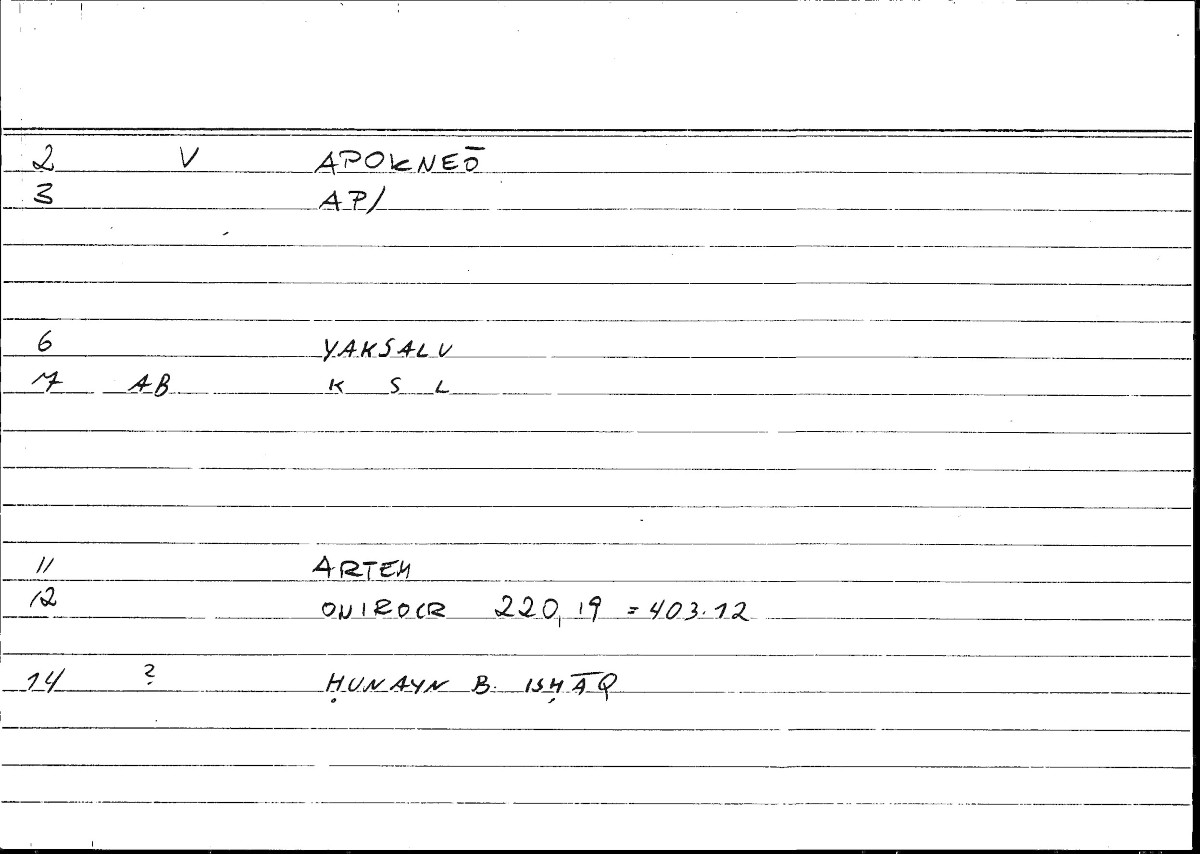 2 V APOKNEŌ
3 AP/
6 YAKSALU
7 AB K S L
11 ARTEM
12 ONIROCR 220,19 = 403.12
14 ? ḤUNAYN B. ISḤĀQ